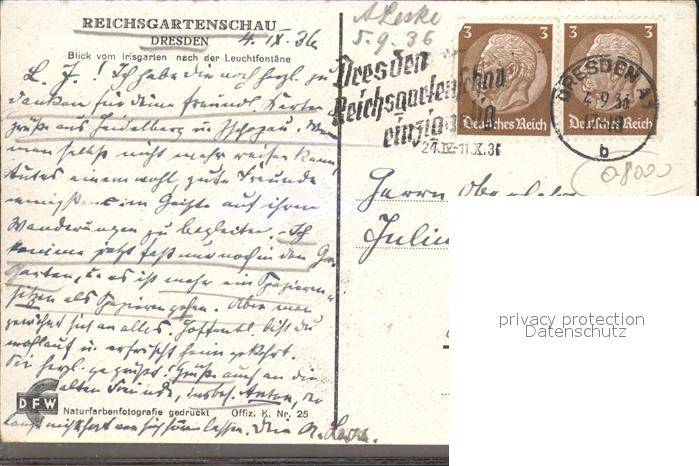 REICHSGARTENSCHAU
DRESDEN 4. IX. 36
Blick vom Irisgarten nach der Leuchtfontäne
L. J.! Ich habe dir noch herzl. zu
danken für deine freundl. Karten-
grüße aus Heidelberg u. Zschopau. Wenn
man selbst nicht mehr reisen kann,
tut es einem wohl, gute Freunde
wenigstens im Geiste auf ihren
Wanderungen zu begleiten. Ich
komme jetzt fast nur noch in den Ga-
rten, u. es ist mehr ein Spazieren-
sitzen als Spazierengehen. Aber man
gewöhnt sich an alles. Hoffentl. bist du
wohlauf u. erfrischt heimgekehrt.
Sei herzl. gegrüßt! Grüße auch an die
alten Freunde, insbes. Anton, der
von sich hören lassen. Dein A.
DFW
Naturfarbenfotografie gedruckt Offiz. K. Nr. 25
A Leske
5. 9. 36
Dresden
Reichsgartenschau
einzig
24.IV-11.X.36
3 3
3 3
Deutsches Reich
Deutsches Reich
DRESDEN A 1
4.9.36
b
08000
Herrn
privacy protection
Datenschutz